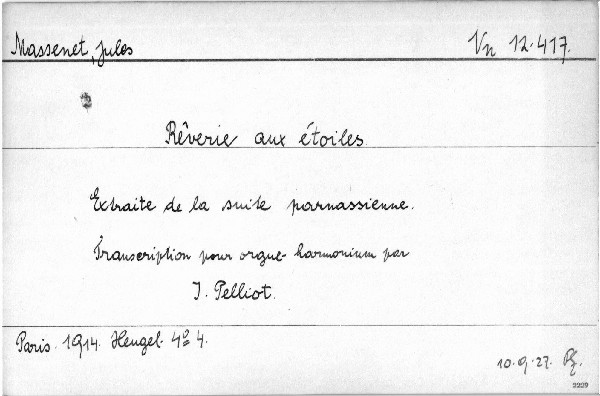 Massenet, Jules
Vn 12.417.
Rêverie aux étoiles
Extraite de la suite parnassienne.
Transcription pour orgue-harmonium par
J. Pelliot.
Paris. 1914. Heugel. 4º 4.
10.9.27.
2229